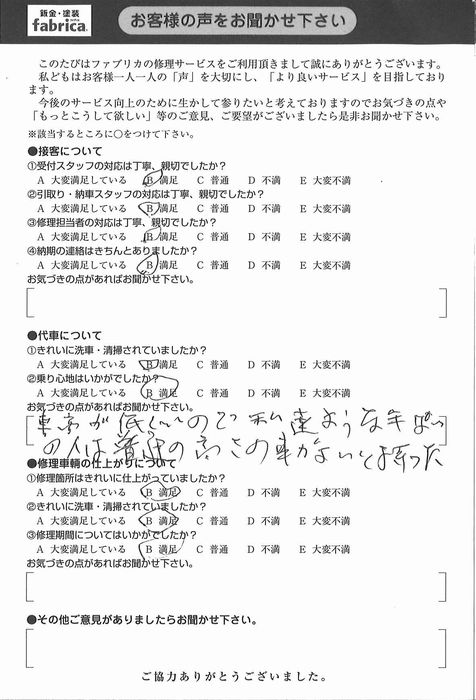 鈑金・塗装
fabrica.
お客様の声をお聞かせ下さい
このたびはファブリカの修理サービスをご利用頂きまして誠にありがとうございます。
私どもはお客様一人一人の「声」を大切にし、「より良いサービス」を目指しており
ます。
今後のサービス向上のために生かして参りたいと考えておりますのでお気づきの点や
「もっとこうして欲しい」等のご意見、ご要望がございましたら是非お聞かせ下さい。
※該当するところに○をつけて下さい。
●接客について
①受付スタッフの対応は丁寧、親切でしたか？
A 大変満足している B 満足 C 普通 D 不満 E 大変不満
②引取り・納車スタッフの対応は丁寧、親切でしたか？
A 大変満足している B 満足 C 普通 D 不満 E 大変不満
③修理担当者の対応は丁寧、親切でしたか？
A 大変満足している B 満足 C 普通 D 不満 E 大変不満
④納期の連絡はきちんとありましたか？
A 大変満足している B 満足 C 普通 D 不満 E 大変不満
お気づきの点があればお聞かせ下さい。
●代車について
①きれいに洗車・清掃されていましたか？
A 大変満足している B 満足 C 普通 D 不満 E 大変不満
②乗り心地はいかがでしたか？
A 大変満足している B 満足 C 普通 D 不満 E 大変不満
お気づきの点があればお聞かせ下さい。
車高が低くいので 私達ような年ぱい
の人は普通の高さの車がよいとは思った
●修理車輌の仕上がりについて
①修理箇所はきれいに仕上がっていましたか？
A 大変満足している B 満足 C 普通 D 不満 E 大変不満
②きれいに洗車・清掃されていましたか？
A 大変満足している B 満足 C 普通 D 不満 E 大変不満
③修理期間についてはいかがでしたか？
A 大変満足している B 満足 C 普通 D 不満 E 大変不満
お気づきの点があればお聞かせ下さい。
●その他ご意見がありましたらお聞かせ下さい。
ご協力ありがとうございました。